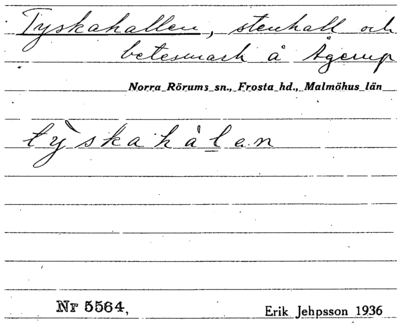 Tyskahallen, stenhall och
betesmark å Ågerup
Norra Rörums sn., Frosta hd., Malmöhus län
tỳskahàlen
Nr 5564,
Erik Jehpsson 1936